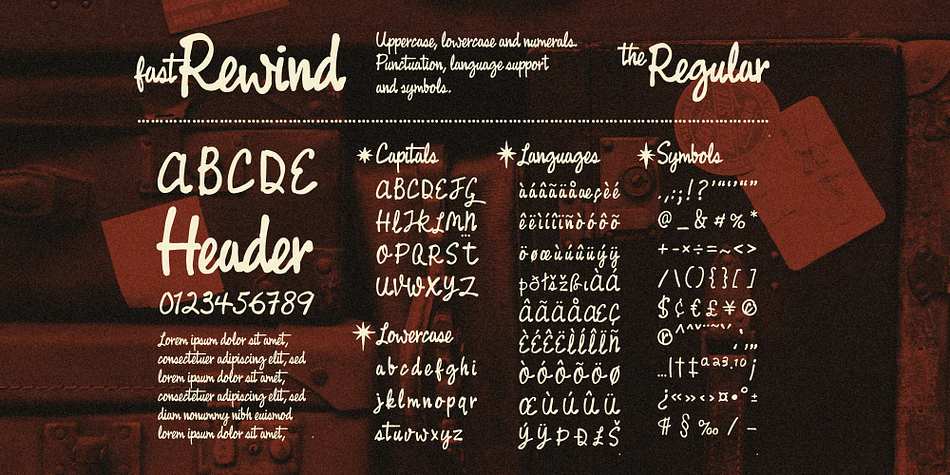 fast Rewind
Uppercase, lowercase and numerals.
Punctuation, language support
and symbols.
the Regular
ABCDE
Header
0123456789
Lorem ipsum dolor sit amet,
consectetuer adipiscing elit, sed
lorem ipsum dolor sit amet,
consectetuer adipiscing elit, sed
diam nonummy nibh euismod
lorem ipsum dolor sit amet,
Capitals
ABCDEFG
HIJKLMN
OPQRST
UVWXYZ
Lowercase
abcdefghi
jklmnopqr
stuvwxyz
Languages
àáâãäåæçèé
êëìíîïñòóôõ
öøœùúûüýÿ
þðłšžßıÀÁ
ÂÃÄÅÆÇ
ÈÉÊËÌÍÎÏÑ
ÒÓÔÕÖØ
ŒÙÚÛÜ
ÝŸÞĐŁŠ
Symbols
.,:;!?'"‘“’”
@_&#%*
+-×÷=~<>
/\(){}[]
$¢€£¥
…|†‡ªº²³·¹⁰¡
¿«»‹›¤•°±
#§‰/–